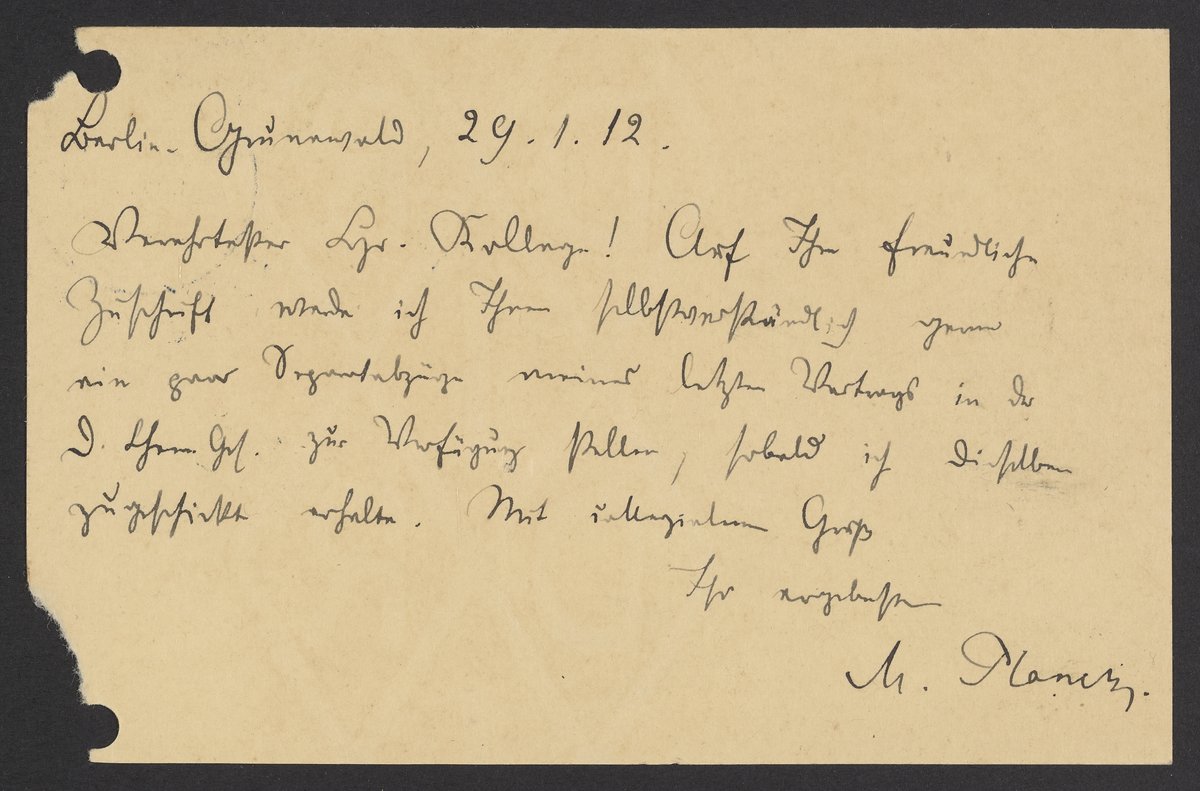 Berlin-Grunewald, 29.1.12.
Verehrtester Hr. Kollege! Auf Ihre freundliche
Zuschrift werde ich Ihnen selbstverständlich gerne
ein paar Separatabzüge meines letzten Vortrags in der
D. Chem. Ges. zur Verfügung stellen, sobald ich dieselben
zugeschickt erhalte. Mit collegialem Gruß
Ihr ergebenster
M. Planck.